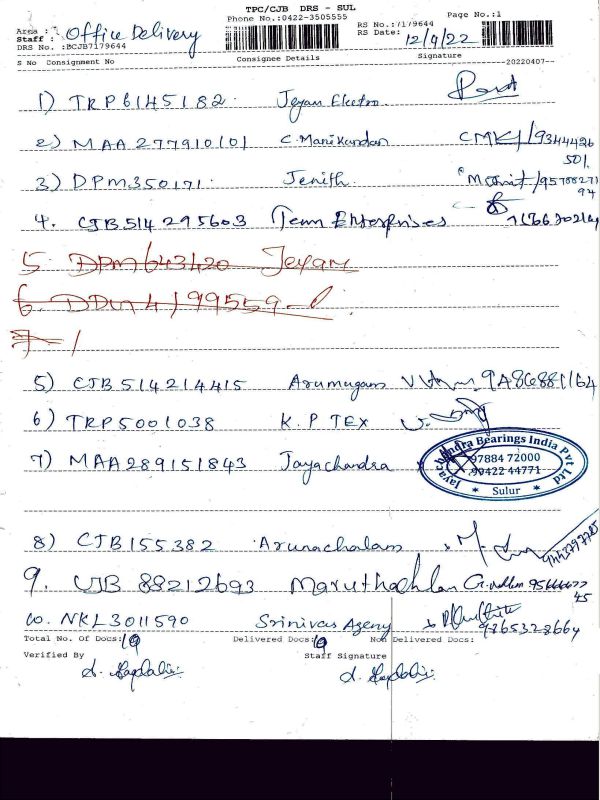 TPC/CJB DRS - SUL
Phone No.:0422-3505555
Page No.:1
Area :
Staff : Office Delivery
RS No.:7179644
RS Date: 12/9/22
DRS No. :BCJB7179644
S No Consignment No Consignee Details Signature
-20220407--
1) TRP6145182 Jeyam Electro
2) MAA 277910101 C. Manikandan CMK/9344426
501
3) DPM350171 Jenith
94
4. CJB514295603 Team Enterprises
5. DPM643420 Jeyam
6. DPM4199559
7
5) CJB514214415 Arumugam
6) TRP5001038 K.P TEX
7) MAA289151843 Jayachandra
Jayachandra Bearings India Pvt Ltd
97884 72000
99422 44771
★ Sulur ★
8) CJB155382 Arunachalam
9. CJB 88212693
45
10. NKL3011590 Srinivas Ageny
9865328664
Total No. Of Docs: 10 Delivered Docs: 10 Non Delivered Docs:
Verified By Staff Signature